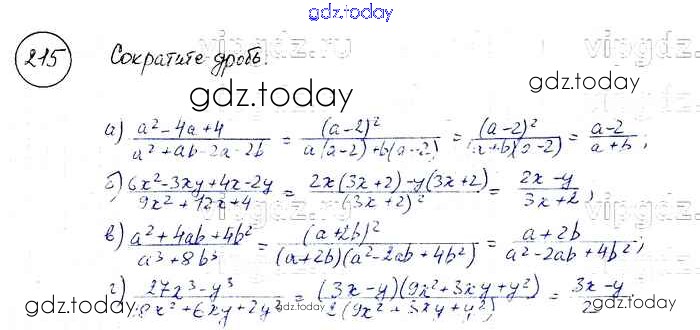 gdz.today
215 Сократите дробь:
vipgdz.ru
gdz.today gdz.today
а) (a² - 4a + 4)/(a² + ab - 2a - 2b) = (a-2)²/(a(a-2) + b(a-2)) = (a-2)²/((a+b)(a-2)) = (a-2)/(a+b);
б) (6x² - 3xy + 4x - 2y)/(9x² + 12x + 4) = (2x(3x+2) - y(3x+2))/(3x+2)² = (2x-y)/(3x+2);
vipgdz.ru
в) (a² + 4ab + 4b²)/(a³ + 8b³) = (a+2b)²/((a+2b)(a² - 2ab + 4b²)) = (a+2b)/(a² - 2ab + 4b²);
г) (27x³ - y³)/(18x² + 6xy + 2y²) = (3x-y)(9x² + 3xy + y²)/(2(9x² + 3xy + y²)) = (3x-y)/2
gdz.today gdz.today gdz.today